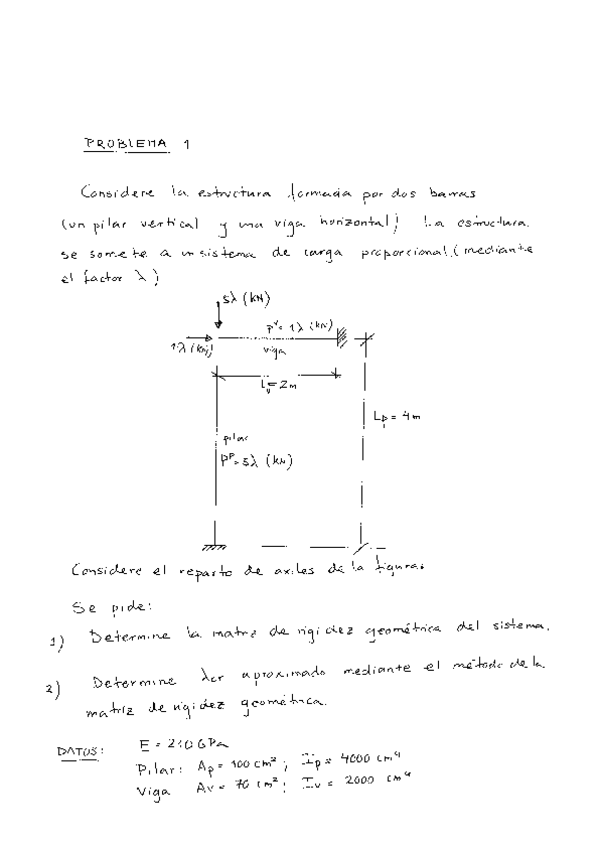 PROBLEMA 1
Considere la estructura formada por dos barras
(un pilar vertical y una viga horizontal) La estructura
se somete a un sistema de carga proporcional (mediante
el factor λ)
5λ (kN)
1λ (kN)
Pᵛ = 1λ (kN)
viga
Lᵥ = 2m
Lₚ = 4m
pilar
Pᴾ = 5λ (kN)
Considere el reparto de axiles de la figura.
Se pide:
1) Determine la matriz de rigidez geométrica del sistema.
2) Determine λcr aproximado mediante el método de la
matriz de rigidez geométrica.
DATOS: E = 210 GPa
Pilar: Ap = 100 cm²; Ip = 4000 cm⁴
Viga Av = 70 cm²; Iv = 2000 cm⁴